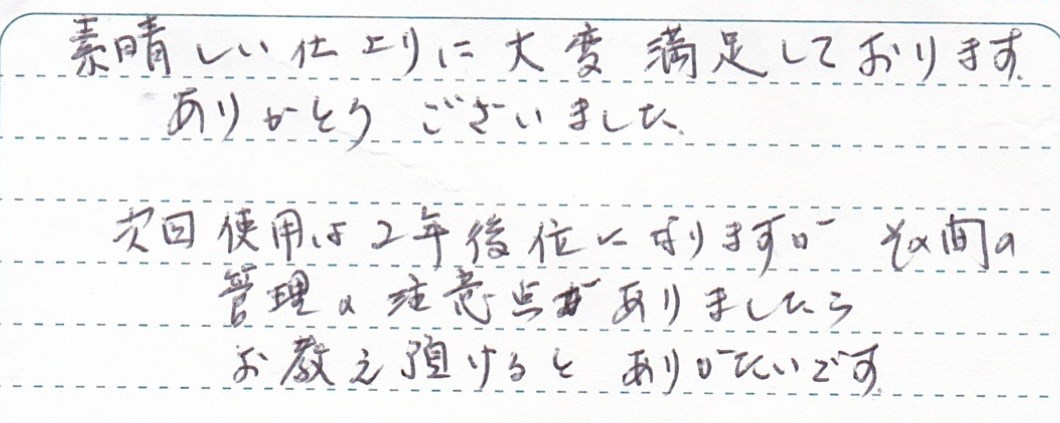 素晴しい仕上りに大変満足しております.
ありがとうございました.
次回使用は2年後位になりますが その間の
管理の注意点がありましたら
お教え頂けると ありがたいです.